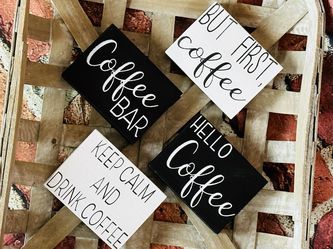 BUT FIRST,
coffee
Coffee
BAR
HELLO
Coffee
KEEP CALM
AND
DRINK COFFEE